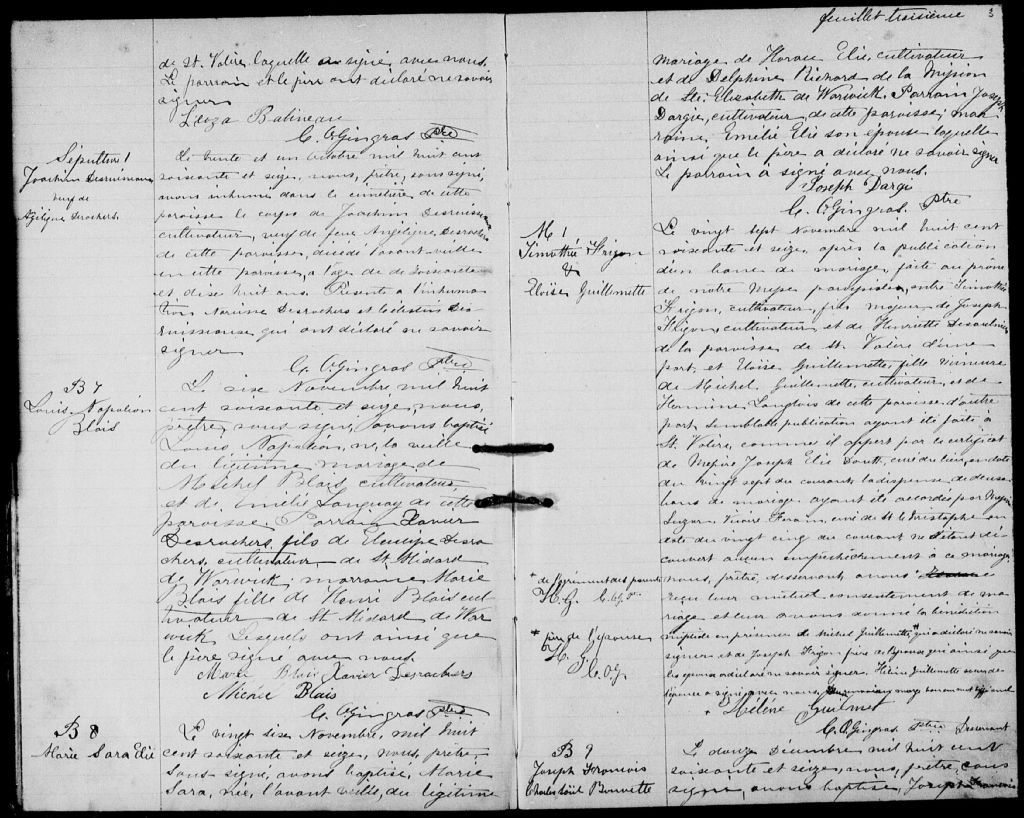 de St. Valère, laquelle a signé avec nous.
Le parrain et le père ont déclaré ne savoir
signer
C. O. Gingras Ptre
Sépulture 1
Joachim Desruisseaux
veuf de
Angélique Desrochers.
Le trente et un Octobre mil huit cent
soixante et seize, nous, prêtre, soussigné,
avons inhumé dans le cimetière de cette
paroisse le corps de Joachim Desruisseaux
cultivateur, veuf de feue Angélique Desrochers
de cette paroisse, décédé l'avant-veille
en cette paroisse, à l'âge de de soixante
et dix huit ans. Présents à l'inhuma
tion Narcisse Desrochers et Célestin Des
ruisseaux qui ont déclaré ne savoir
signer
C. O. Gingras Ptre
B 7
Louis Napoléon
Blais
Le six Novembre mil huit
cent soixante et seize, nous,
prêtre, sous signé, avons baptisé
Louis Napoléon, né, la veille
du légitime mariage de
Michel Blais cultivateur
et de Emélie Languay de cette
paroisse. Parrain Xavier
Desrochers, fils de Eleusipe Desro
chers, cultivateur, de St. Médard
de Warwick; marraine Marie
Blais fille de Henri Blais cul
tivateur de St Médard de War
wick Lesquels ont ainsi que
le père signé avec nous.
Marie Blais Xavier Desrochers
Michel Blais
C. O. Gingras Ptre
B 8
Marie Sara Elie
Le vingt six Novembre, mil huit
cent soixante et seize, nous, prêtre,
sous-signé, avons baptisé, Marie
Sara, née, l'avant veille, du légitime
feuillet troisième
3
mariage de Horace Elie, cultivateur
et de Delphine Richard de la Mission
de Ste. Elizabeth de Warwick. Parrain Joseph
Dargis, cultivateur, de cette paroisse; mar
raine, Emélie Elie son épouse laquelle
ainsi que le père a déclaré ne savoir signer
Le parrain a signé avec nous.
Joseph Dargi
C. O. Gingras Ptre
M 1
Timothée Frigon
&
Eloïse Guillemette
Le vingt sept Novembre mil huit cent
soixante et seize, après la publication
d'un banc de mariage, faite au prône
de notre Messe paroissiale, entre Timothée
Frigon, cultivateur, fils majeur de Joseph
Frigon, cultivateur et de Henriette Desaulniers
de la paroisse de St. Valère d'une
part, et Eloïse Guillemette, fille mineure
de Michel Guillemette, cultivateur, et de
Hermine Langlois de cette paroisse d'autre
part, semblable publication ayant été faite à
St. Valère, comme il appert par le certificat
de Messire Joseph Elie curé du lieu, en date
du vingt sept du courant, la dispense de deux
bans de mariage ayant été accordés par Messire
curé de St Christophe en
date du vingt cinq du courant ne s'étant dé
couvert aucun empêchement à ce mariage,
nous, prêtre, desservant, avons *
reçu leur mutuel consentement de ma
riage et leur avons donné la bénédiction
nuptiale en présence de Michel Guillemette * qui a déclaré ne savoir
signer et de Joseph Frigon père de l'époux qui ainsi que
les époux a déclaré ne savoir signer. Hélène Guillemette
a signé avec nous,
* du agrément des parents
H. G. C. O. G.
* père de l'épouse
H. G. C. O. G.
Hélène Guilmet
C. O. Gingras Ptre Desservant
B 9
Joseph François
Charles Bouvette
Le douze Décembre mil huit cent
soixante et seize, nous, prêtre, sous
signé, avons baptisé, Joseph François